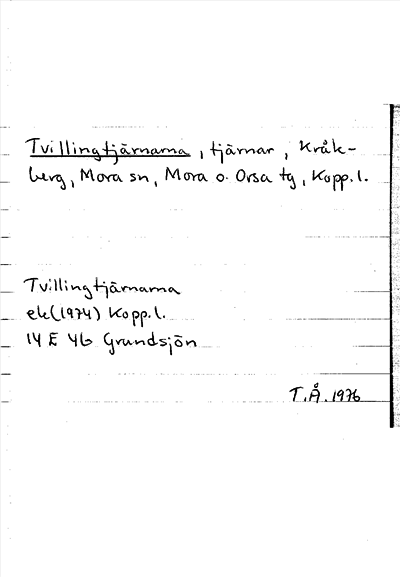 Tvillingtjärnarna, tjärnar, Kråk-
berg, Mora sn, Mora o. Orsa tg, Kopp.l.
Tvillingtjärnarna
ek(1974) Kopp.l.
14 E 4b Grundsjön
T.Å.1976